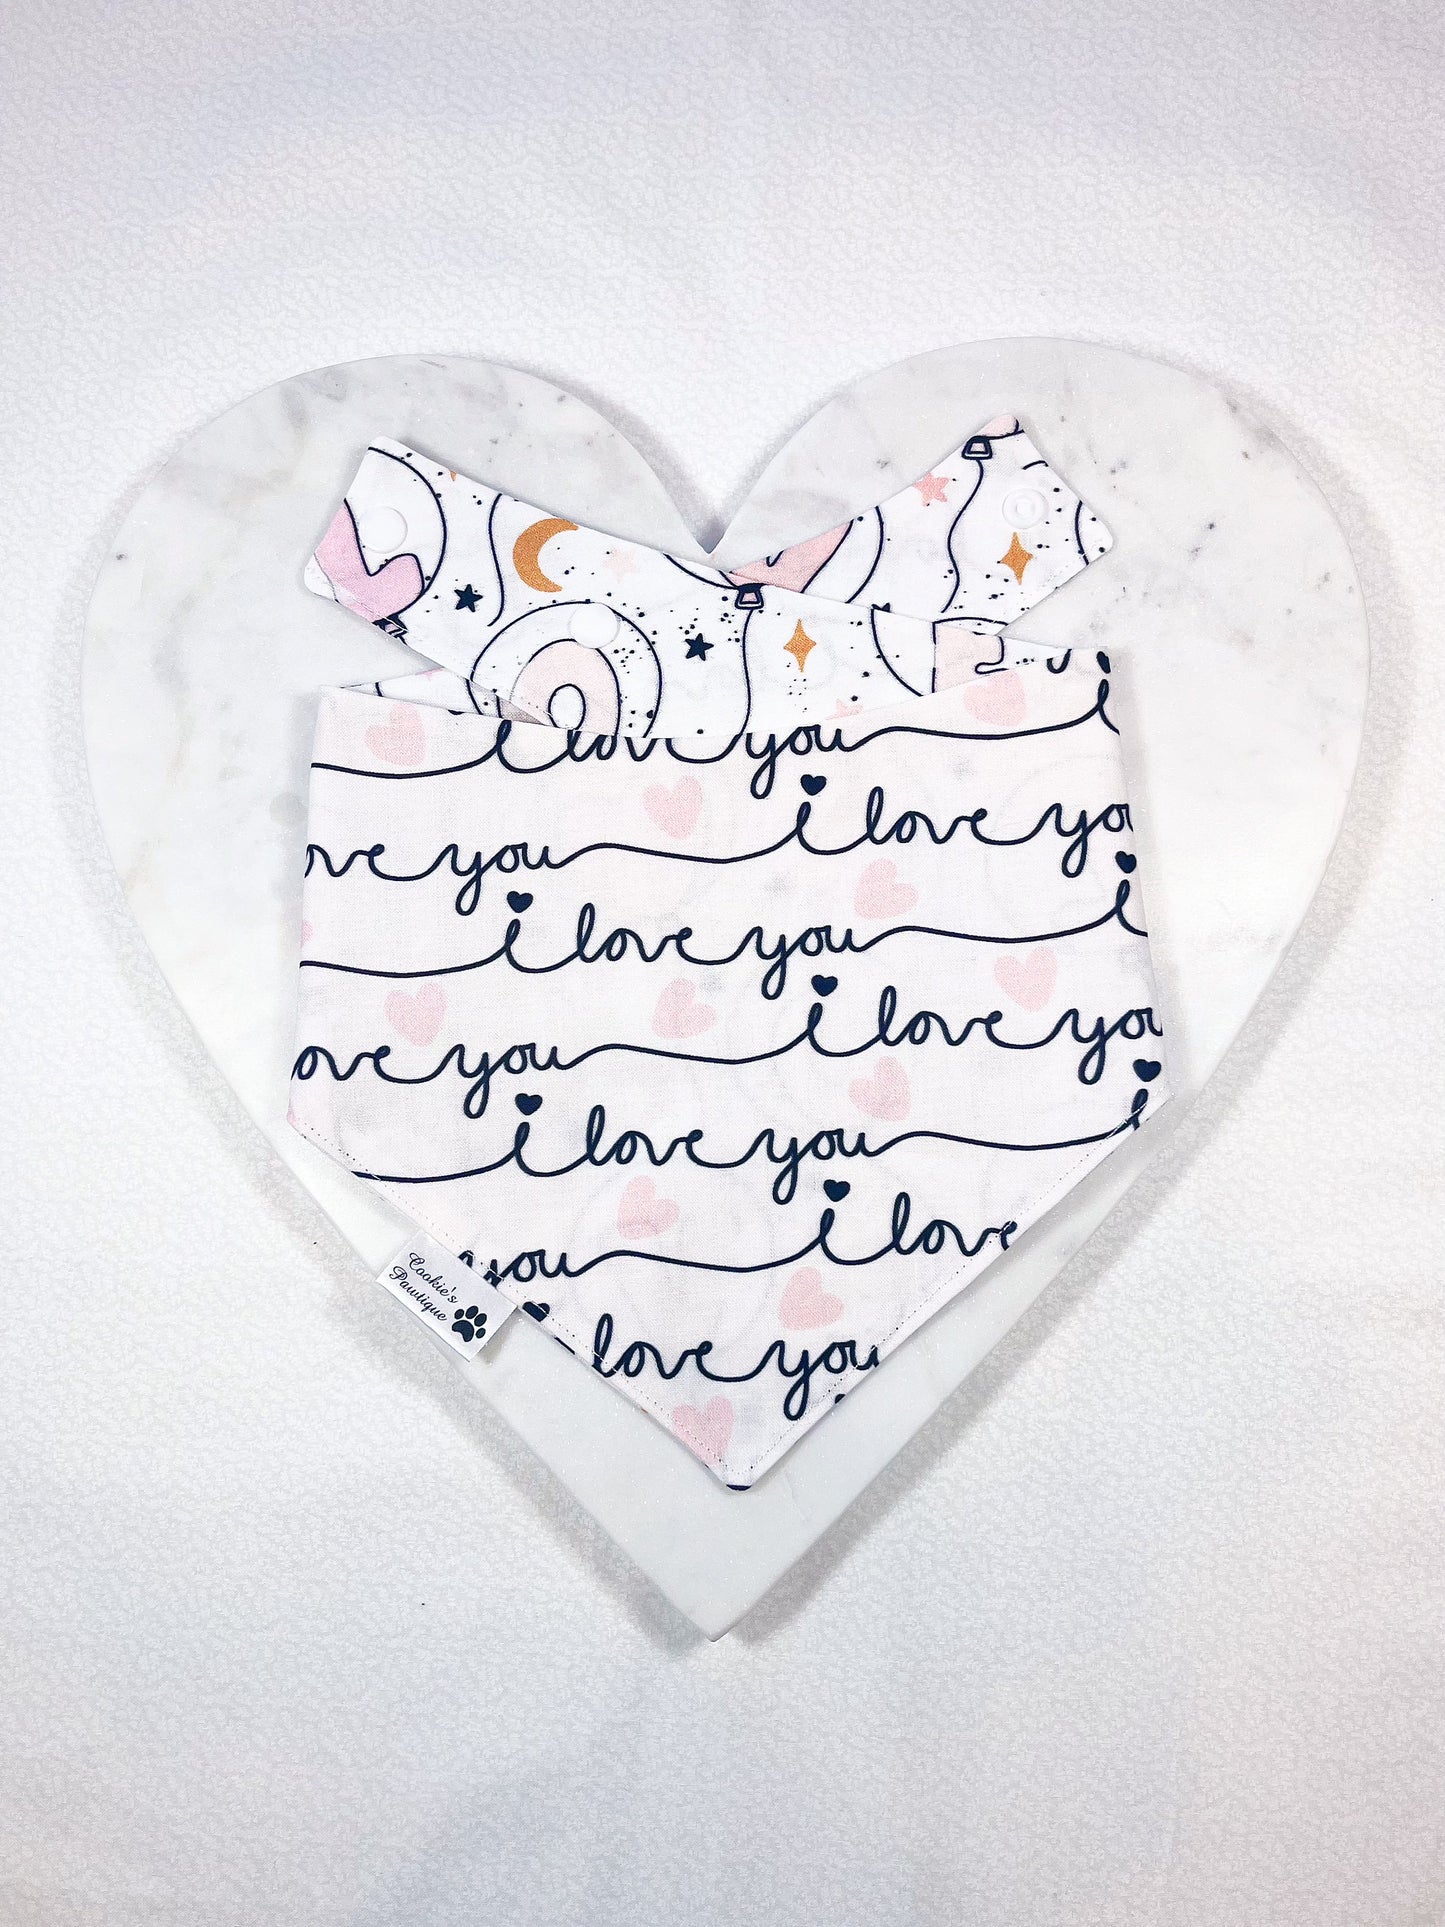 i love you
ove you i love yo
i love you i
ove you i love you
i love you i
you i love
love you
Cookie's
Pawtique